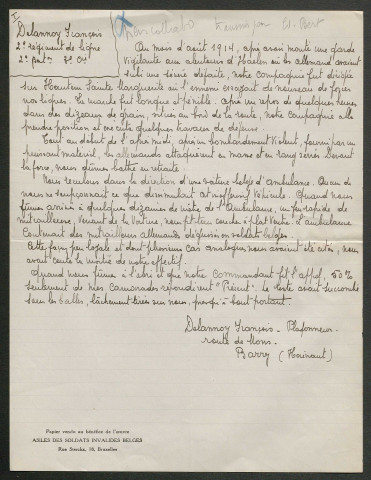 I
Delannoy François
2e régiment de ligne
2e 3e Cie
Transmis par Ed. Bert
Au mois d'août 1914, après avoir monté une garde
vigilante aux alentours d'Haelen où les allemands avaient
subi une sérieuse défaite, notre compagnie fut dirigée
sur Hautem Sainte Marguerite où l'ennemi essayait de nouveau de forcer
nos lignes. La marche fut longue et pénible. Après un repos de quelques heures,
dans des dizeaux de grain, situés au bord de la route, notre compagnie alla
prendre position et exécuta quelques travaux de défense.
Tout au début de l'après midi, après un bombardement violent, fourni par un
puissant matériel, les allemands attaquèrent en masse et en rangs serrés. Devant
la force, nous dûmes battre en retraite.
Nous reculons dans la direction d'une voiture belge d'ambulance. Aucun de
nous ne soupçonnait ce que dissimulait cet inoffensif véhicule. Quand nous
fûmes arrivés à quelques dizaines de mètres de l'ambulance, un feu rapide de
mitrailleuse, venant de la voiture, nous fit tous coucher à plat ventre. L'ambulance
contenait des mitrailleurs allemands déguisés en soldats belges.
Cette farce peu loyale et dont plusieurs cas analogues nous avaient été cités, nous
avait coûté la moitié de notre effectif.
Quand nous fûmes à l'abri et que notre Commandant fit l'appel, 50%
seulement de mes camarades répondirent "Présent". Le reste avait succombé
sous les balles, lâchement tirées sur nous, presqu'à bout portant.
Delannoy François - Plafonneur -
route de Mons -
Barry (Hainaut)
Papier vendu au bénéfice de l'œuvre
ASILES DES SOLDATS INVALIDES BELGES
Rue Stevin, 16, Bruxelles